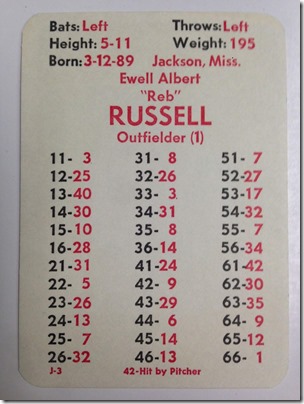 Bats: Left Throws: Left
Height: 5-11 Weight: 195
Born: 3-12-89 Jackson, Miss.
Ewell Albert
"Reb"
RUSSELL
Outfielder (1)
11- 3 31- 8 51- 7
12-25 32-26 52-27
13-40 33- 3 53-17
14-30 34-31 54-32
15-10 35- 8 55- 7
16-28 36-14 56-34
21-31 41-24 61-42
22- 5 42- 9 62-30
23-26 43-29 63-35
24-13 44- 6 64- 9
25- 7 45-14 65-12
26-32 46-13 66- 1
J-3 42-Hit by Pitcher